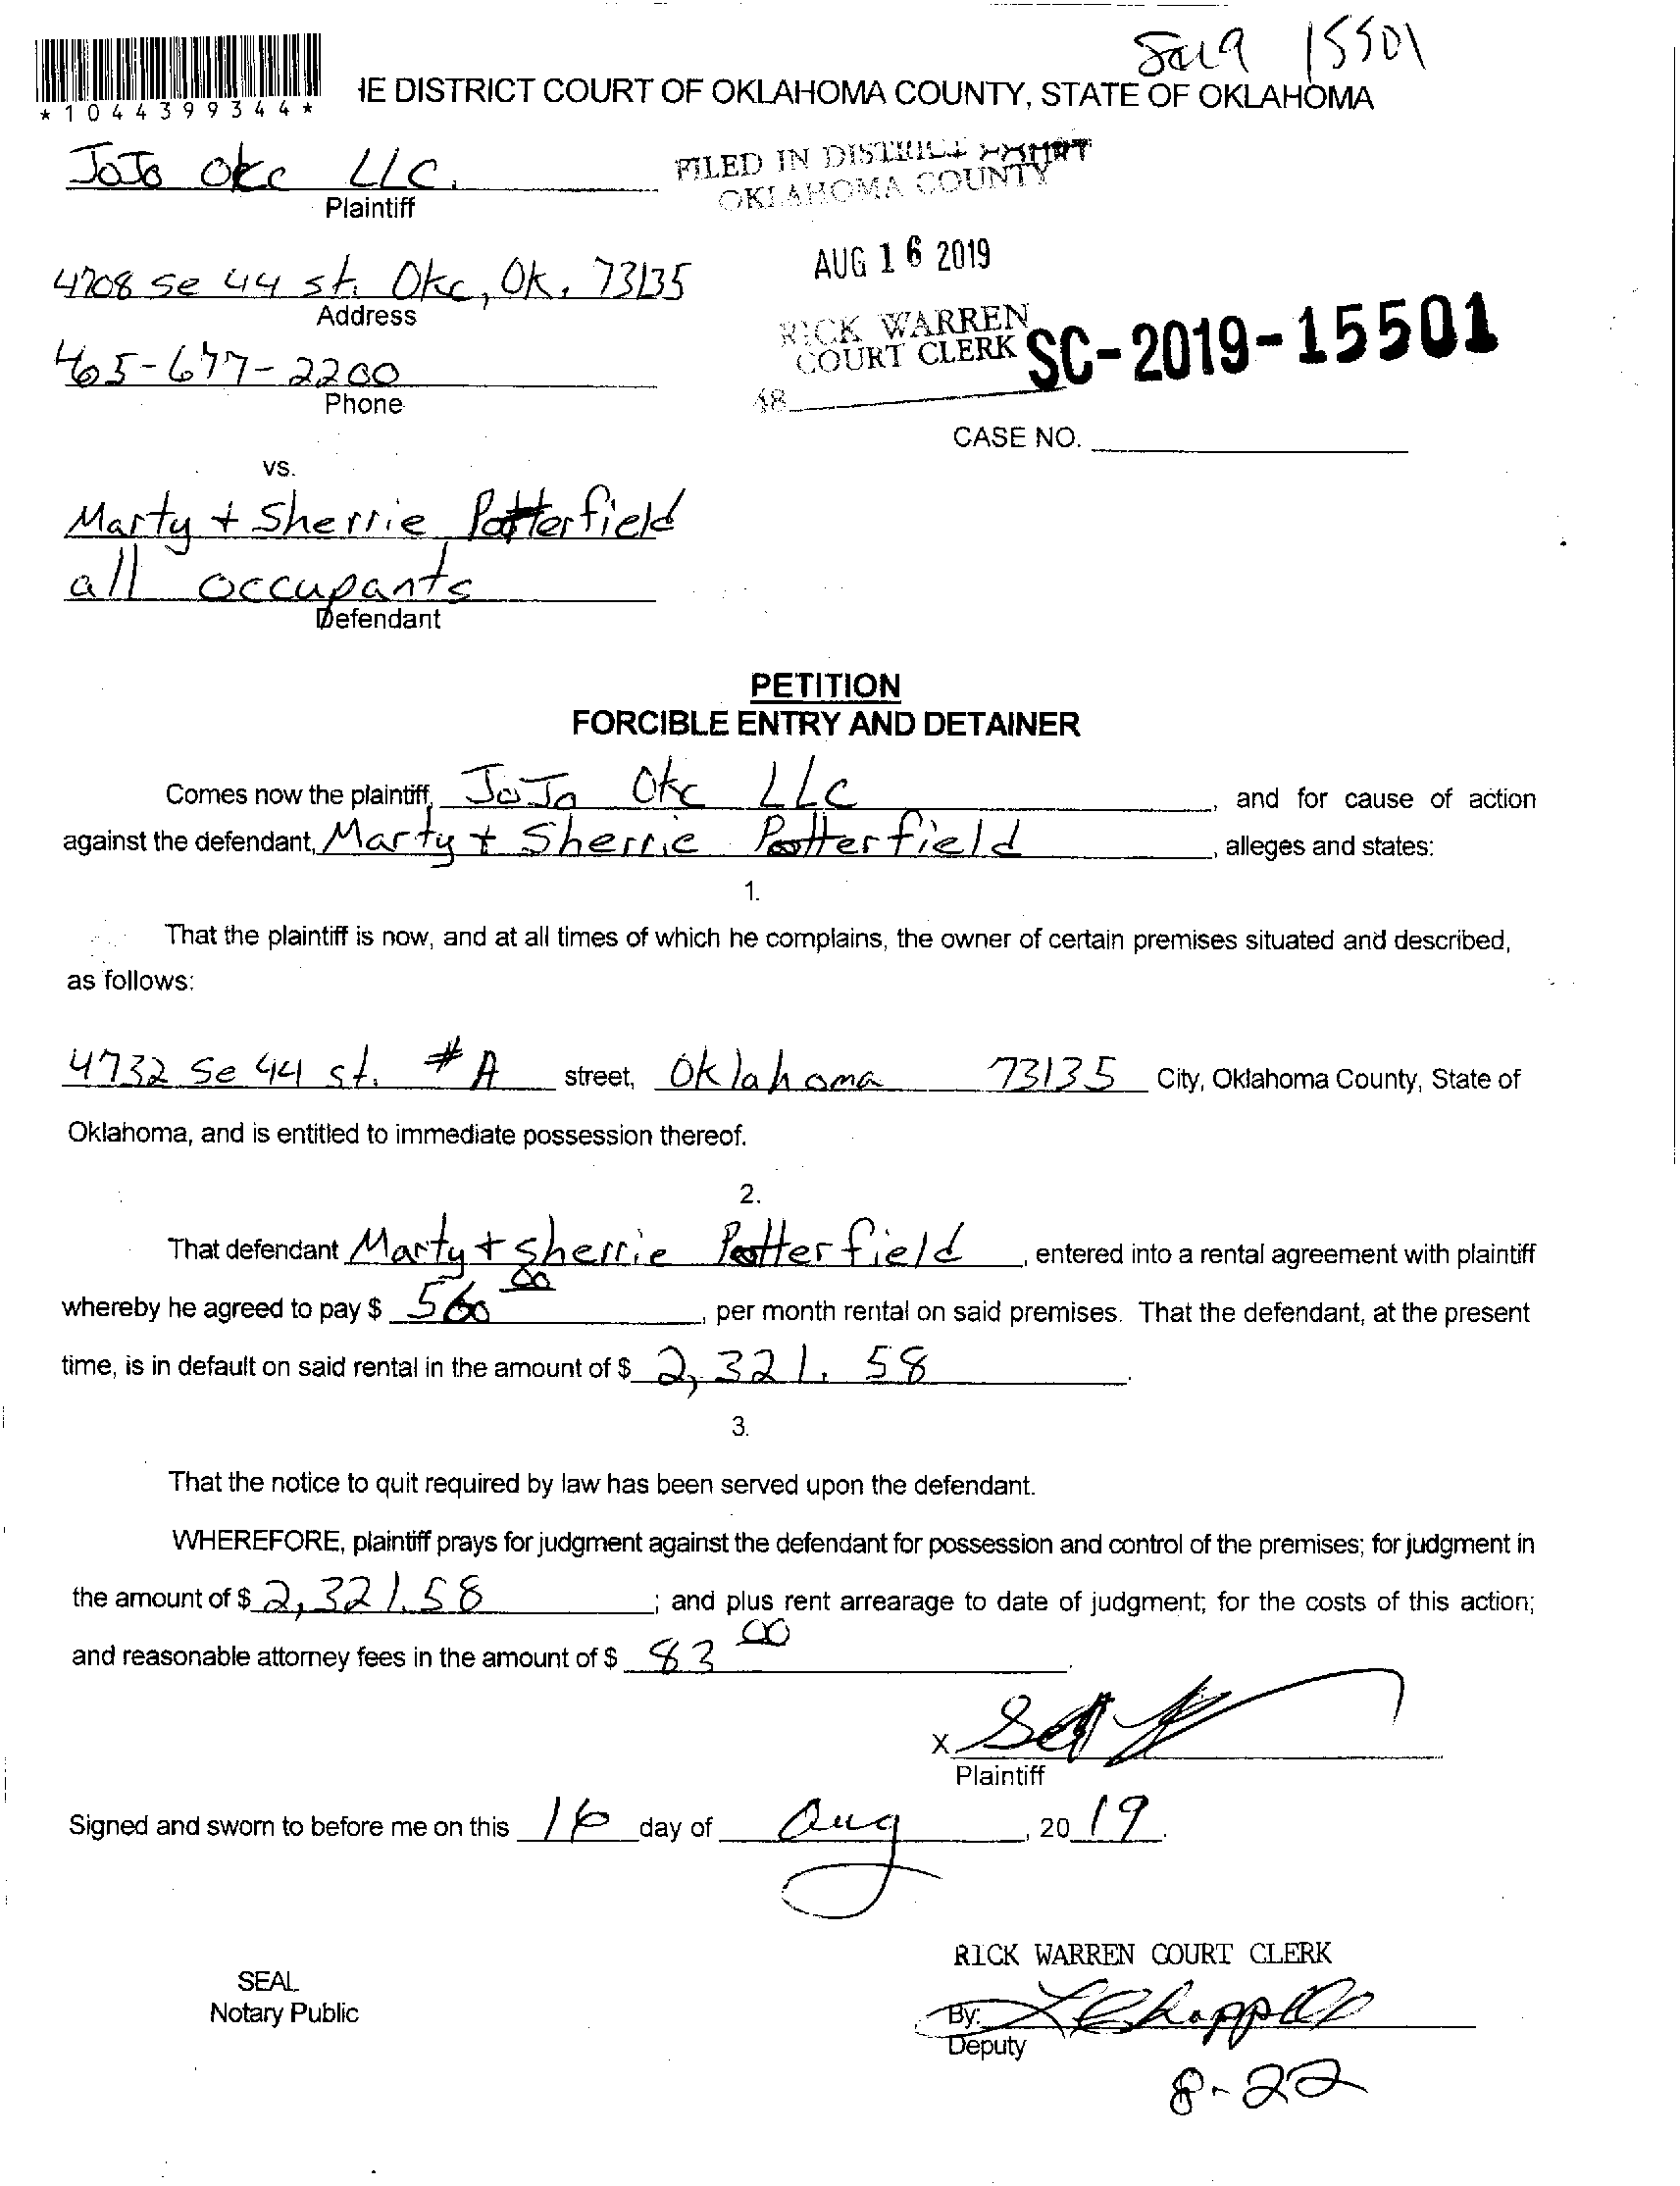 15501
*1044399344*
IE DISTRICT COURT OF OKLAHOMA COUNTY, STATE OF OKLAHOMA
JoJo Okc LLC.
Plaintiff
FILED IN DISTRICT COURT
OKLAHOMA COUNTY
4708 Se 44 st. Okc, Ok. 73135
Address
AUG 16 2019
405-677-2200
Phone
RICK WARREN
COURT CLERK
SC-2019-15501
48
CASE NO.
vs.
Marty + Sherrie Potterfield
all occupants
Defendant
PETITION
FORCIBLE ENTRY AND DETAINER
Comes now the plaintiff, JoJo Okc LLC, and for cause of action
against the defendant, Marty + Sherrie Potterfield, alleges and states:
1.
That the plaintiff is now, and at all times of which he complains, the owner of certain premises situated and described,
as follows:
4732 Se 44 st. #A street, Oklahoma 73135 City, Oklahoma County, State of
Oklahoma, and is entitled to immediate possession thereof.
2.
That defendant Marty + Sherrie Potterfield, entered into a rental agreement with plaintiff
whereby he agreed to pay $ 560 00, per month rental on said premises. That the defendant, at the present
time, is in default on said rental in the amount of $ 2,321.58.
3.
That the notice to quit required by law has been served upon the defendant.
WHEREFORE, plaintiff prays for judgment against the defendant for possession and control of the premises; for judgment in
the amount of $ 2,321.58; and plus rent arrearage to date of judgment; for the costs of this action;
and reasonable attorney fees in the amount of $ 83 00.
X
Plaintiff
Signed and sworn to before me on this 16 day of Aug, 2019.
RICK WARREN COURT CLERK
SEAL
Notary Public
By:
Deputy
8-22